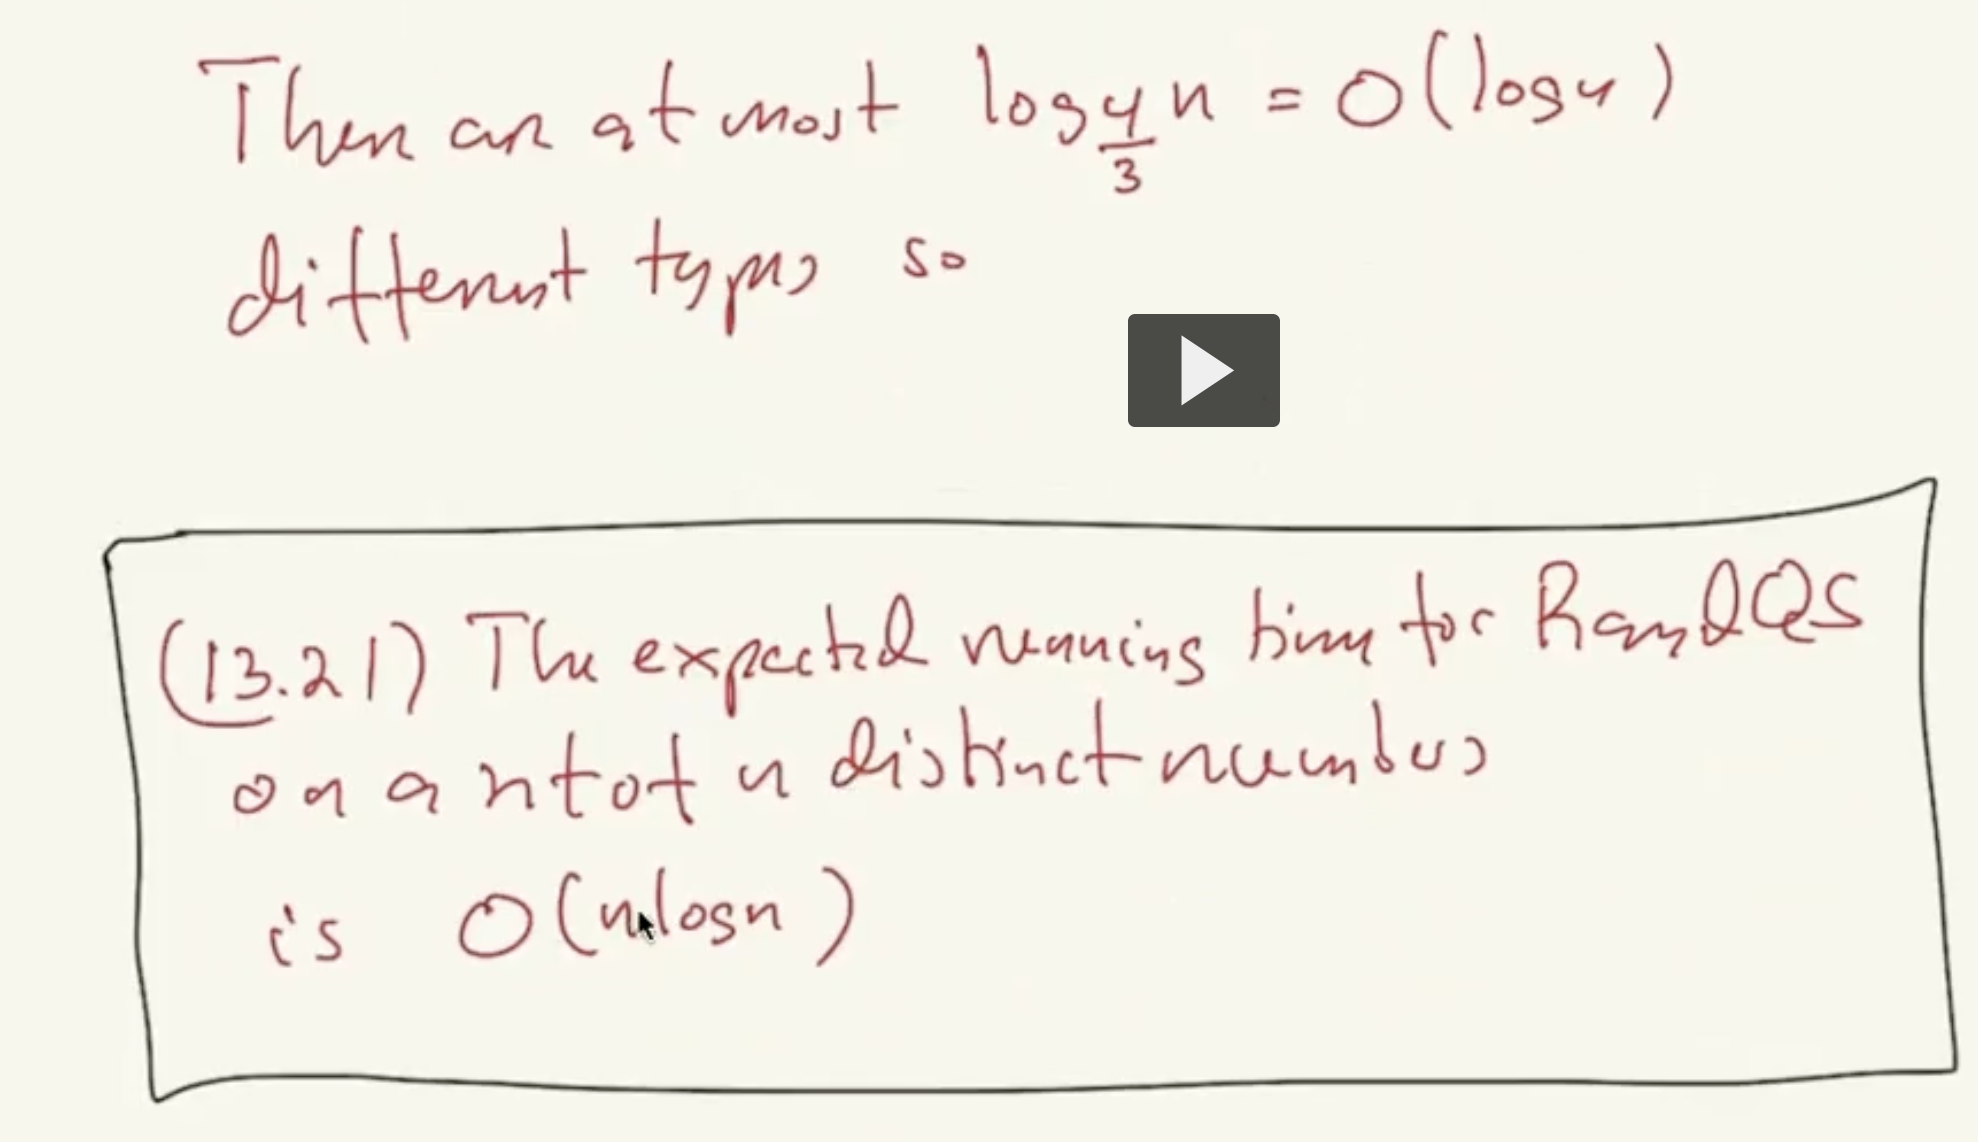 There are at most log 4/3 n = O(log n)
different types so
(13.21) The expected running time for RandQS
on a set of n distinct numbers
is O(n log n)